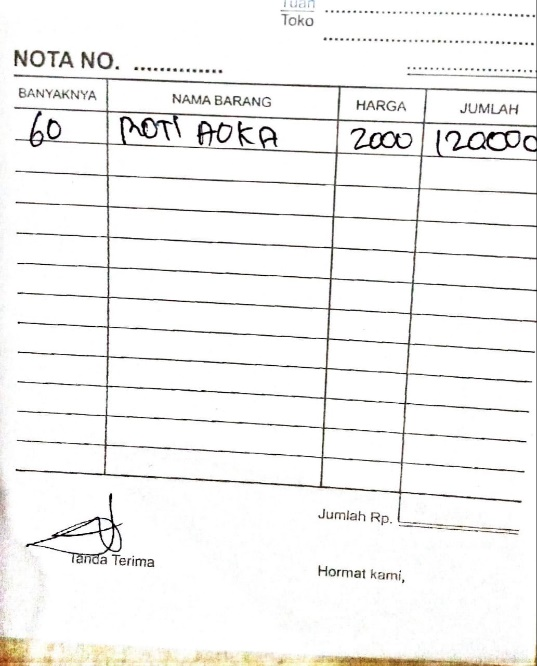 Tuan ..............................
Toko
..............................
NOTA NO. ..............
BANYAKNYA NAMA BARANG HARGA JUMLAH
60 ROTI AOKA 2000 120.000
Jumlah Rp.
Tanda Terima
Hormat kami,